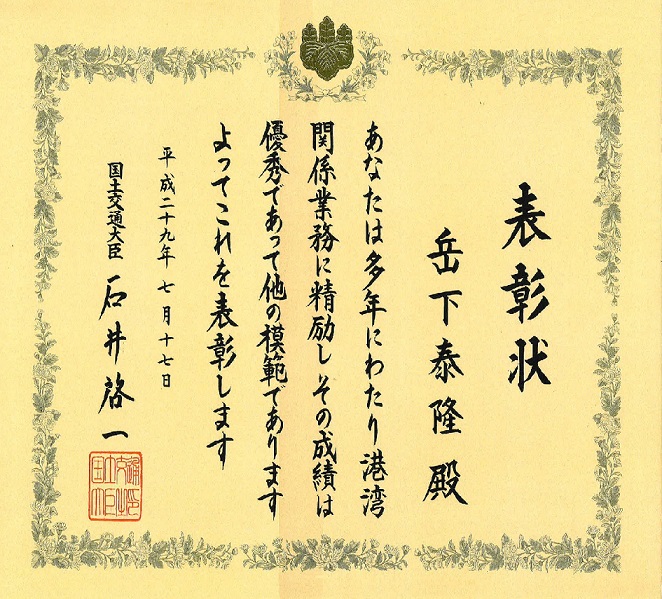 表彰状
岳下泰隆殿
あなたは多年にわたり港湾
関係業務に精励しその成績は
優秀であって他の模範であります
よってこれを表彰します
平成二十九年七月十七日
国土交通大臣 石井啓一